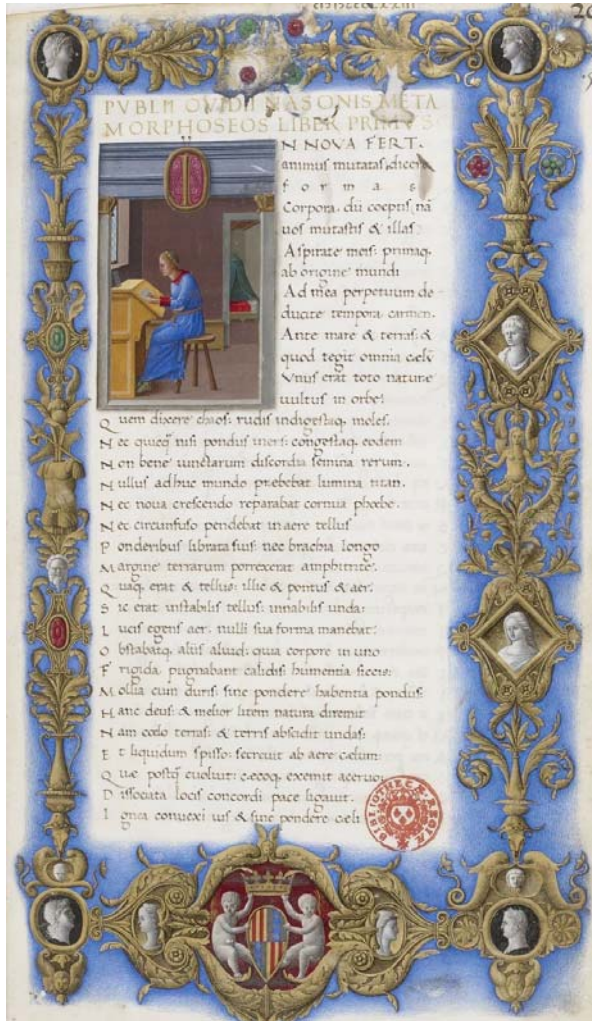 PVBLII OVIDII NASONIS META
MORPHOSEOS LIBER PRIMVS
I
N NOVA FERT.
animus mutatas dicere
formas
Corpora. dii coeptis nã
uos mutastis & illas:
Aspirate meis: primaq,
ab origine mundi
Ad mea perpetuum de
ducite tempora carmen.
Ante mare & terras: &
quod tegit omnia cælũ
Vnus erat toto naturæ
uultus in orbe:
Quem dixere chaos: rudis indigestaq, moles.
Nec quicq̃ nisi pondus iners: congestaq, eodem
Non bene iunctarum discordia semina rerum.
Nullus adhuc mundo præbebat lumina titan.
Nec noua crescendo reparabat cornua phœbe.
Nec circunfuso pendebat in aere tellus
Ponderibus librata suis: nec brachia longo
Margine terrarum porrexerat amphitrite.
Quaq, erat & tellus: illic & pontus & aer.
Sic erat instabilis tellus: innabilis unda:
Lucis egens aer. nulli sua forma manebat:
Obstabatq, aliis aliud: quia corpore in uno
Frigida pugnabant calidis humentia siccis:
Mollia cum duris: sine pondere habentia pondus.
Hanc deus: & melior litem natura diremit
Nam cœlo terras: & terris abscidit undas:
Et liquidum spisso: secreuit ab aere cælum:
Quæ postq̃ euoluit: cæcoq, exemit aceruo:
Dissociata locis concordi pace ligauit.
Ignea conuexi uis & sine pondere cæli
BIBLIOTHECÆ REGIÆ